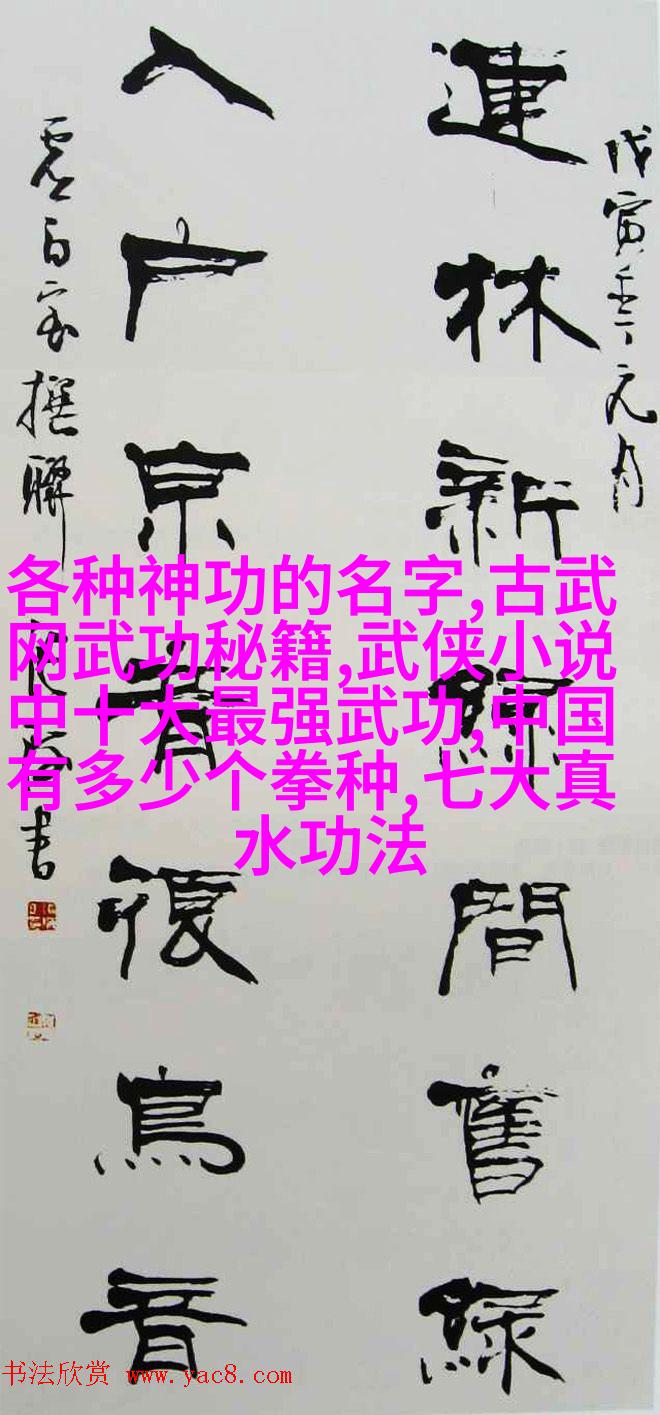 戊寅年元月
連林新綠間舊綠
入户京鳥音
白撰聯書
各种神功的名字,古武
网武功秘籍,武侠小说
中十大最强武功,中国
有多少个拳种,七大真
水功法
书法欣赏 www.yac8.com